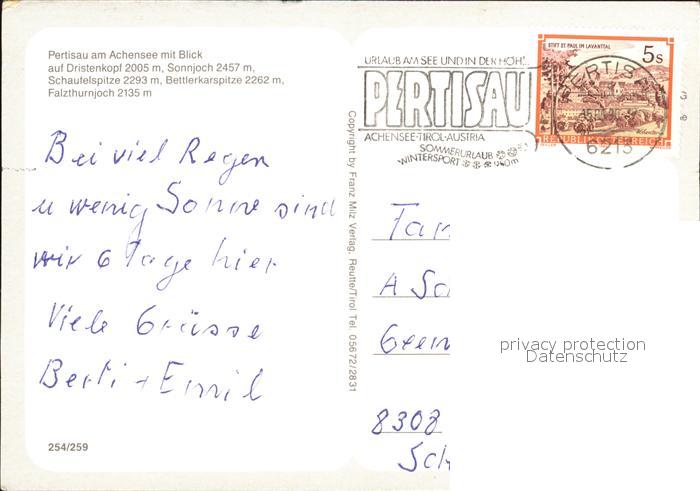 Pertisau am Achensee mit Blick
auf Dristenkopf 2005 m, Sonnjoch 2457 m,
Schaufelspitze 2293 m, Bettlerkarspitze 2262 m,
Falzthurnjoch 2135 m
Bei viel Regen
u wenig Sonne sind
wir 6 Tage hier
Viele Grüsse
Berti + Emil
254/259
Copyright by Franz Milz Verlag, Reutte/Tirol Tel. 05672/2831
URLAUB AM SEE UND IN DER HÖH'
PERTISAU
ACHENSEE-TIROL-AUSTRIA
SOMMERURLAUB
WINTERSPORT
STIFT ST. PAUL IM LAVANTTAL
5s
REPUBLIK ÖSTERREICH
PERTISAU
6213
Fam
A Sc
Green
8308
Sch
privacy protection
Datenschutz